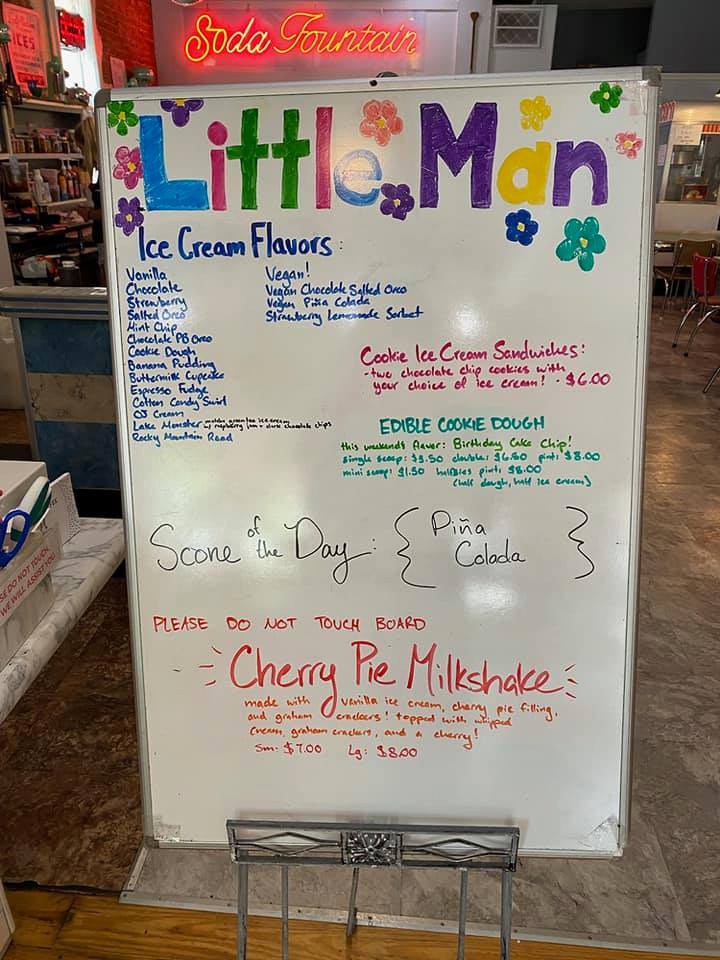 Soda Fountain
Little Man
Ice Cream Flavors:
Vanilla
Chocolate
Strawberry
Salted Oreo
Mint Chip
Chocolate PB Oreo
Cookie Dough
Banana Pudding
Buttermilk Cupcake
Espresso Fudge
Cotton Candy Swirl
OJ Cream
Lake Monster matcha green tea ice cream
w/ raspberry jam + dark chocolate chips
Rocky Mountain Road
Vegan!
Vegan Chocolate Salted Oreo
Vegan Piña Colada
Strawberry Lemonade Sorbet
Cookie Ice Cream Sandwiches:
-two chocolate chip cookies with
your choice of ice cream! - $6.00
EDIBLE COOKIE DOUGH
this weekend's flavor: Birthday Cake Chip!
single scoop: $3.50 double: $6.50 pint: $8.00
mini scoop: $1.50 halfsies pint: $8.00
(half dough, half ice cream)
Scone of the Day: { Piña
Colada }
PLEASE DO NOT TOUCH BOARD
Cherry Pie Milkshake
made with vanilla ice cream, cherry pie filling,
and graham crackers! topped with whipped
cream, graham crackers, and a cherry!
Sm: $7.00 Lg: $8.00
SE DO NOT TOUCH,
WE WILL ASSIST
ICES